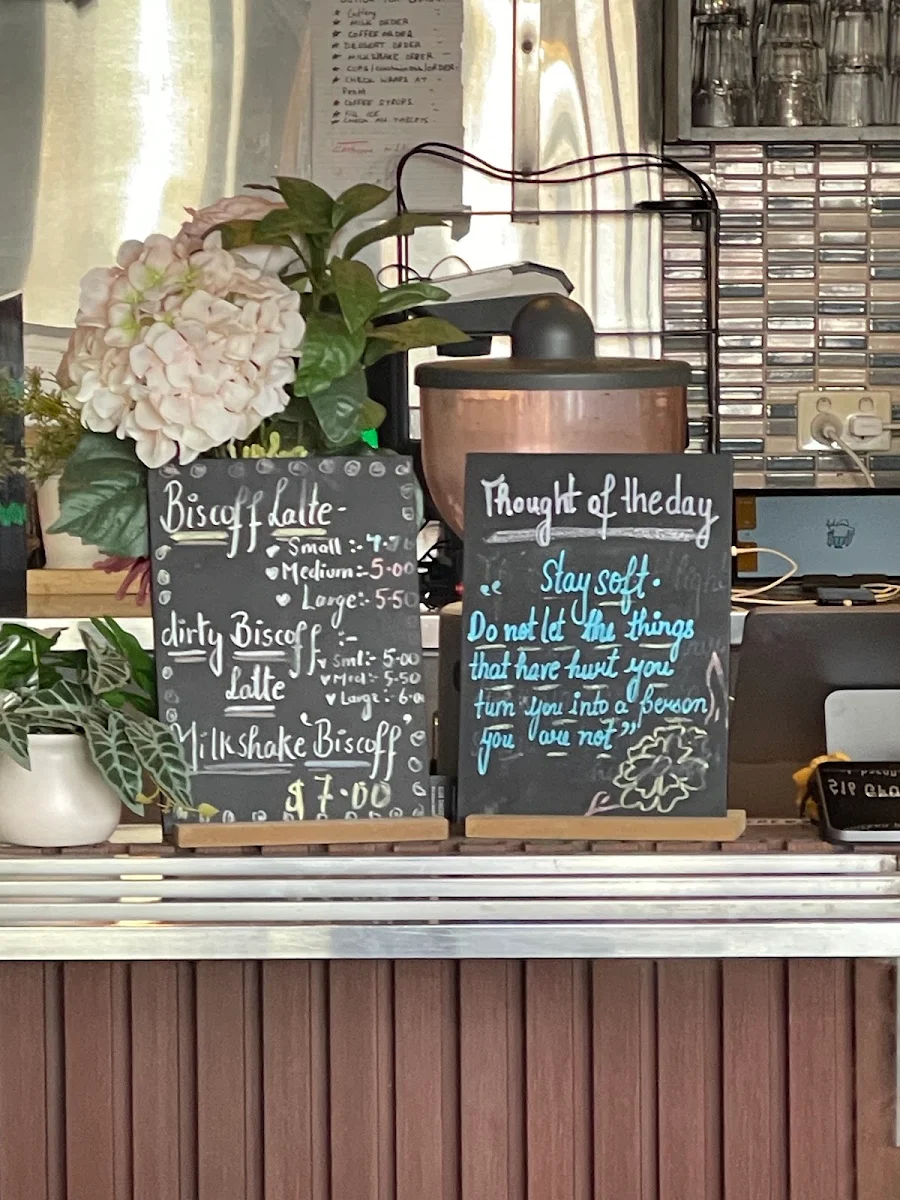 ★ Cutlery
★ MILK ORDER
★ COFFEE ORDER
★ DESSERT ORDER
★ MILKSHAKE ORDER
★ CHECK WRAPS AT
Front
★ COFFEE SYRUPS
★ FILL ICE
Biscoff Latte-
Small :-
Medium:- 5.00
Large:- 5.50
dirty Biscoff :-
Latte
Sml:- 5.00
Med:- 5.50
Large:-
Milkshake 'Biscoff'
$7.00
Thought of the day
“ Stay soft.
Do not let the things
that have hurt you
turn you into a person
you are not”